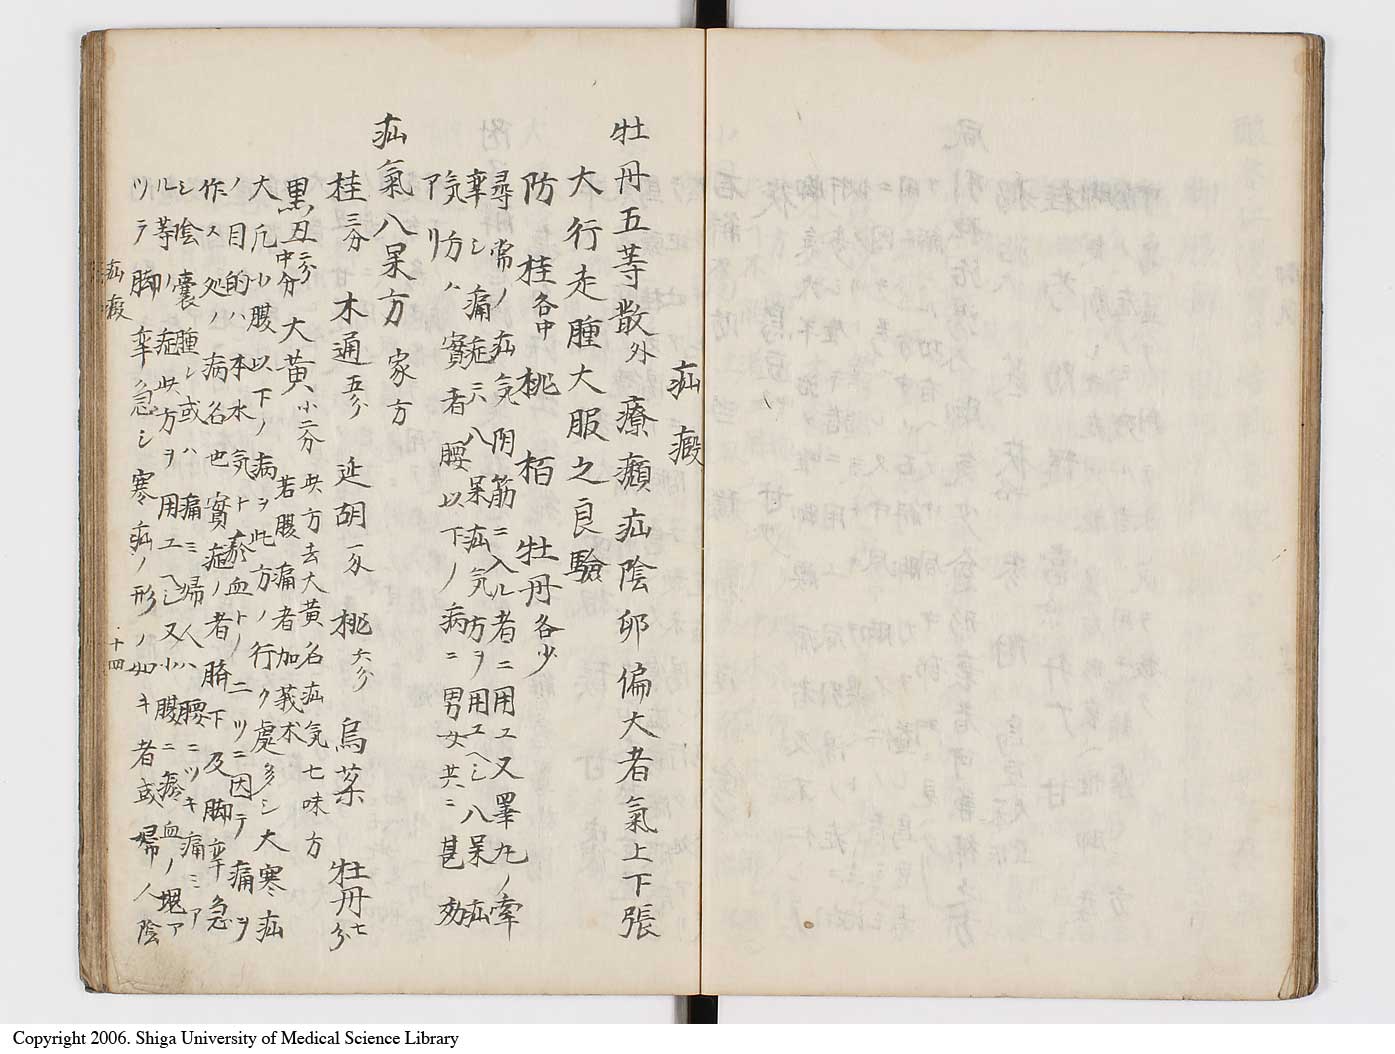 疝瘕
牡丹五等散 外 療癩疝陰卵偏大者氣上下張
大行走腫大服之良驗
防 桂各中 桃 栢 牡丹各少
尋常ノ疝気阴筋ニ入ル者ニ用ユ又睪丸ノ牽
挛シ痛症ニハ八呆疝気方ヲ用ユヘシ八呆疝
気方ハ實者腰以下ノ病ニ男女共ニ甚効
アリ
疝氣八呆方 家方
桂三分 木通五分 延胡一分 桃六分 烏薬 牡丹七分
黒丑二分中分 大黄小二分 此方去大黄名疝気七味方
若腹痛者加莪朮
大凡小腹以下ノ病ヲ此方ノ行ク處多シ大寒疝
ノ目的ハ本水気ト瘀血トノ二ツニ因テ痛ヲ
作ス処ノ病名也實症ノ者臍下及脚挛急
シ陰嚢腫シ或ハ痛ミ婦人ハ腰ニツキ痛ミア
ル等ノ症此方ヲ用ユヘシ又小腹ニ瘀血ノ塊ア
ツテ脚挛急シ寒疝ノ形ノ如キ者或婦人陰
疝瘕 十四
Copyright 2006. Shiga University of Medical Science Library